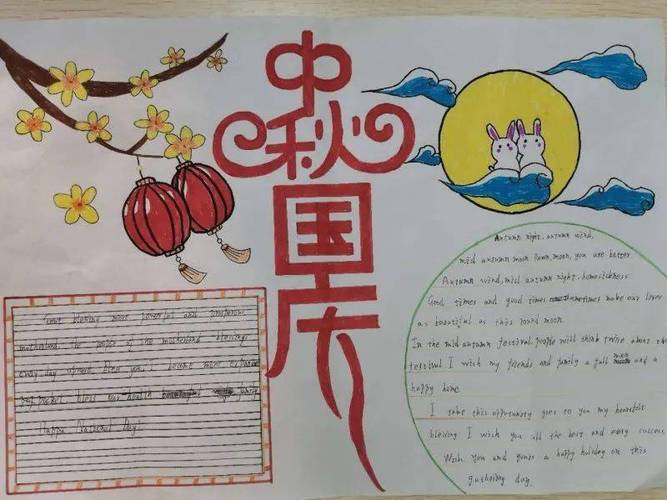 中
秋
国
庆
Autumn night, autumn wind,
mid autumn moon moon, you are better
Autumn wind, mid autumn night, homesickness
Good times and good times sometimes make our lives
as beautiful as this round moon.
In the mid autumn festival, people will think twice about
festival I wish my friends and family a full moon and a
happy home.
I take this opportunity goes to you my heartfelt
blessing I wish you all the best and every success
Wish you and yours a happy holiday on this
gathering day.
more powerful and prosperous
motherland the people of the motherland
every day Bless you, I become more
bless our health family
Happy National day!